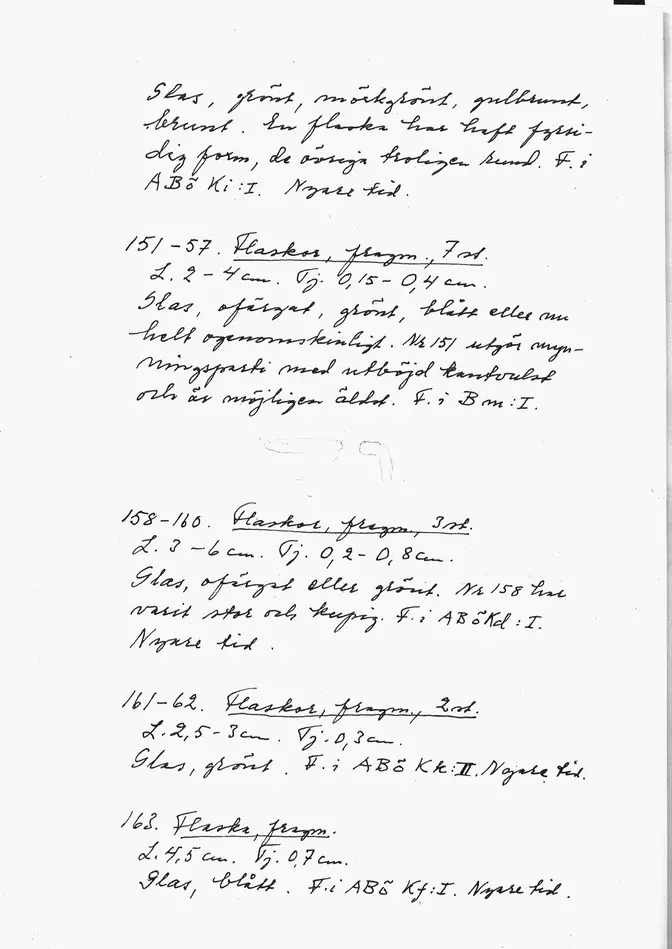 Glas, grönt, mörkgrönt, gulbrunt,
brunt. En flaska har haft fyrsi-
dig form, de övriga troligen rund. F. i
ABö Ki:I. Nyare tid.
151-57. Flaskor, fragm., 7 st.
L. 2-4 cm. Tj. 0,15-0,4 cm.
Glas, ofärgat, grönt, blått eller nu
helt ogenomskinligt. Nr 151 utgör myn-
ningsparti med utböjd kantvulst
och är möjligen äldst. F. i B m:I.
158-160. Flaskor, fragm., 3 st.
L. 3-6 cm. Tj. 0,2-0,8 cm.
Glas, ofärgat eller grönt. Nr 158 har
varit stor och kupig. F. i ABöKd:I.
Nyare tid.
161-62. Flaskor, fragm., 2 st.
L. 2,5-3 cm. Tj. 0,3 cm.
Glas, grönt. F. i ABö Kk:II. Nyare tid.
163. Flaska, fragm.
L. 4,5 cm. Tj. 0,7 cm.
Glas, blått. F. i ABö Kf:I. Nyare tid.